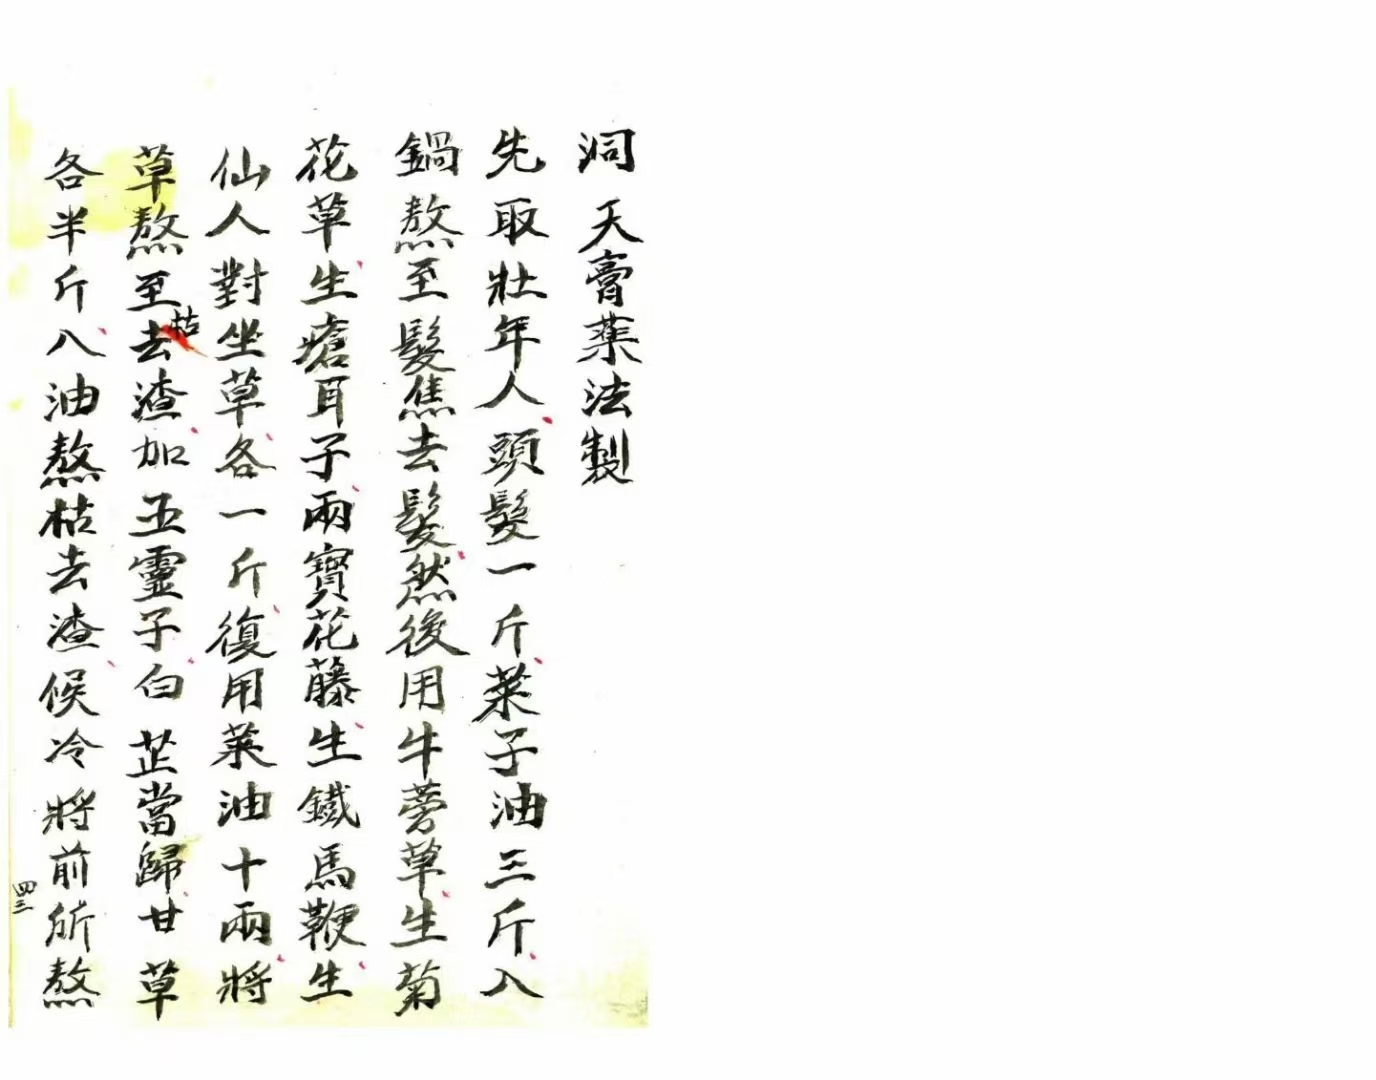 洞天膏藥法製
先取壯年人頭髮一斤菜子油三斤入
鍋熬至髮焦去髮然後用牛蒡草生菊
花草生瘡耳子兩寳花藤生鐵馬鞭生
仙人對坐草各一斤復用菜油十兩將
草熬至枯去渣加五靈子白芷當歸甘草
各半斤八油熬枯去渣候冷將前所熬
四三